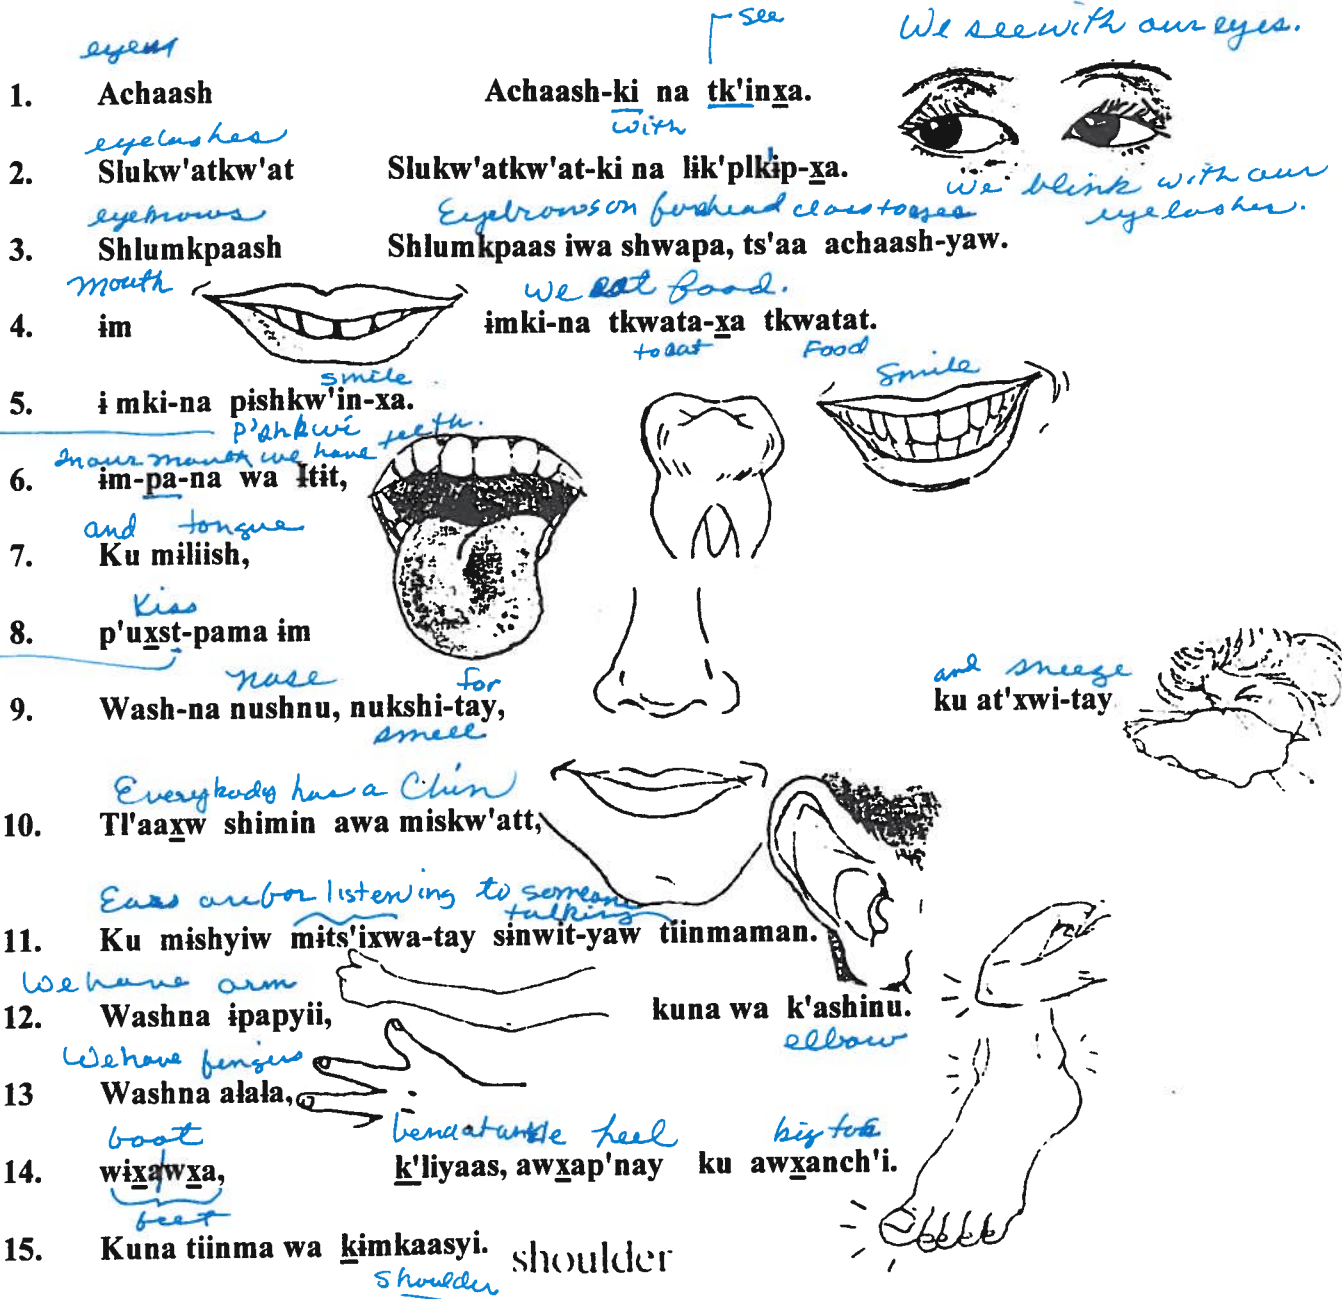 see
We see with our eyes.
eyes
1. Achaash Achaash-ki na tk'inxa.
with
eyelashes
2. Slukw'atkw'at Slukw'atkw'at-ki na łik'plk'ip-xa.
We blink with our
eyelashes.
eyebrows Eyebrows on forehead close to eyes
3. Shłumkpaash Shłumkpaas iwa shwapa, ts'aa achaash-yaw.
mouth we eat food.
4. ɨm ɨmki-na tkwata-xa tkwatat.
to eat Food
smile Smile
5. ɨ mki-na pɨshkw'in-xa.
p'shkwi
In our mouth we have teeth.
6. ɨm-pa-na wa łtɨt,
and tongue
7. Ku mɨliish,
Kiss
8. p'uxst-pama ɨm
nose for and sneeze
9. Wash-na nushnu, nukshi-tay, ku at'xwi-tay
smell
Everybody has a Chin
10. Tl'aaxw shimin awa miskw'att,
Ears are for listening to someone
talking
11. Ku mishyiw mɨts'ixwa-tay sɨnwit-yaw tiinmaman.
We have arm
12. Washna ɨpapyii, kuna wa k'ashinu.
elbow
We have fingers
13 Washna ałała,
foot bend at ankle heel big toe
14. wɨxawxa, k'liyaas, awxap'nay ku awxanch'i.
feet
15. Kuna tiinma wa kɨmkaasyi. shoulder
shoulder